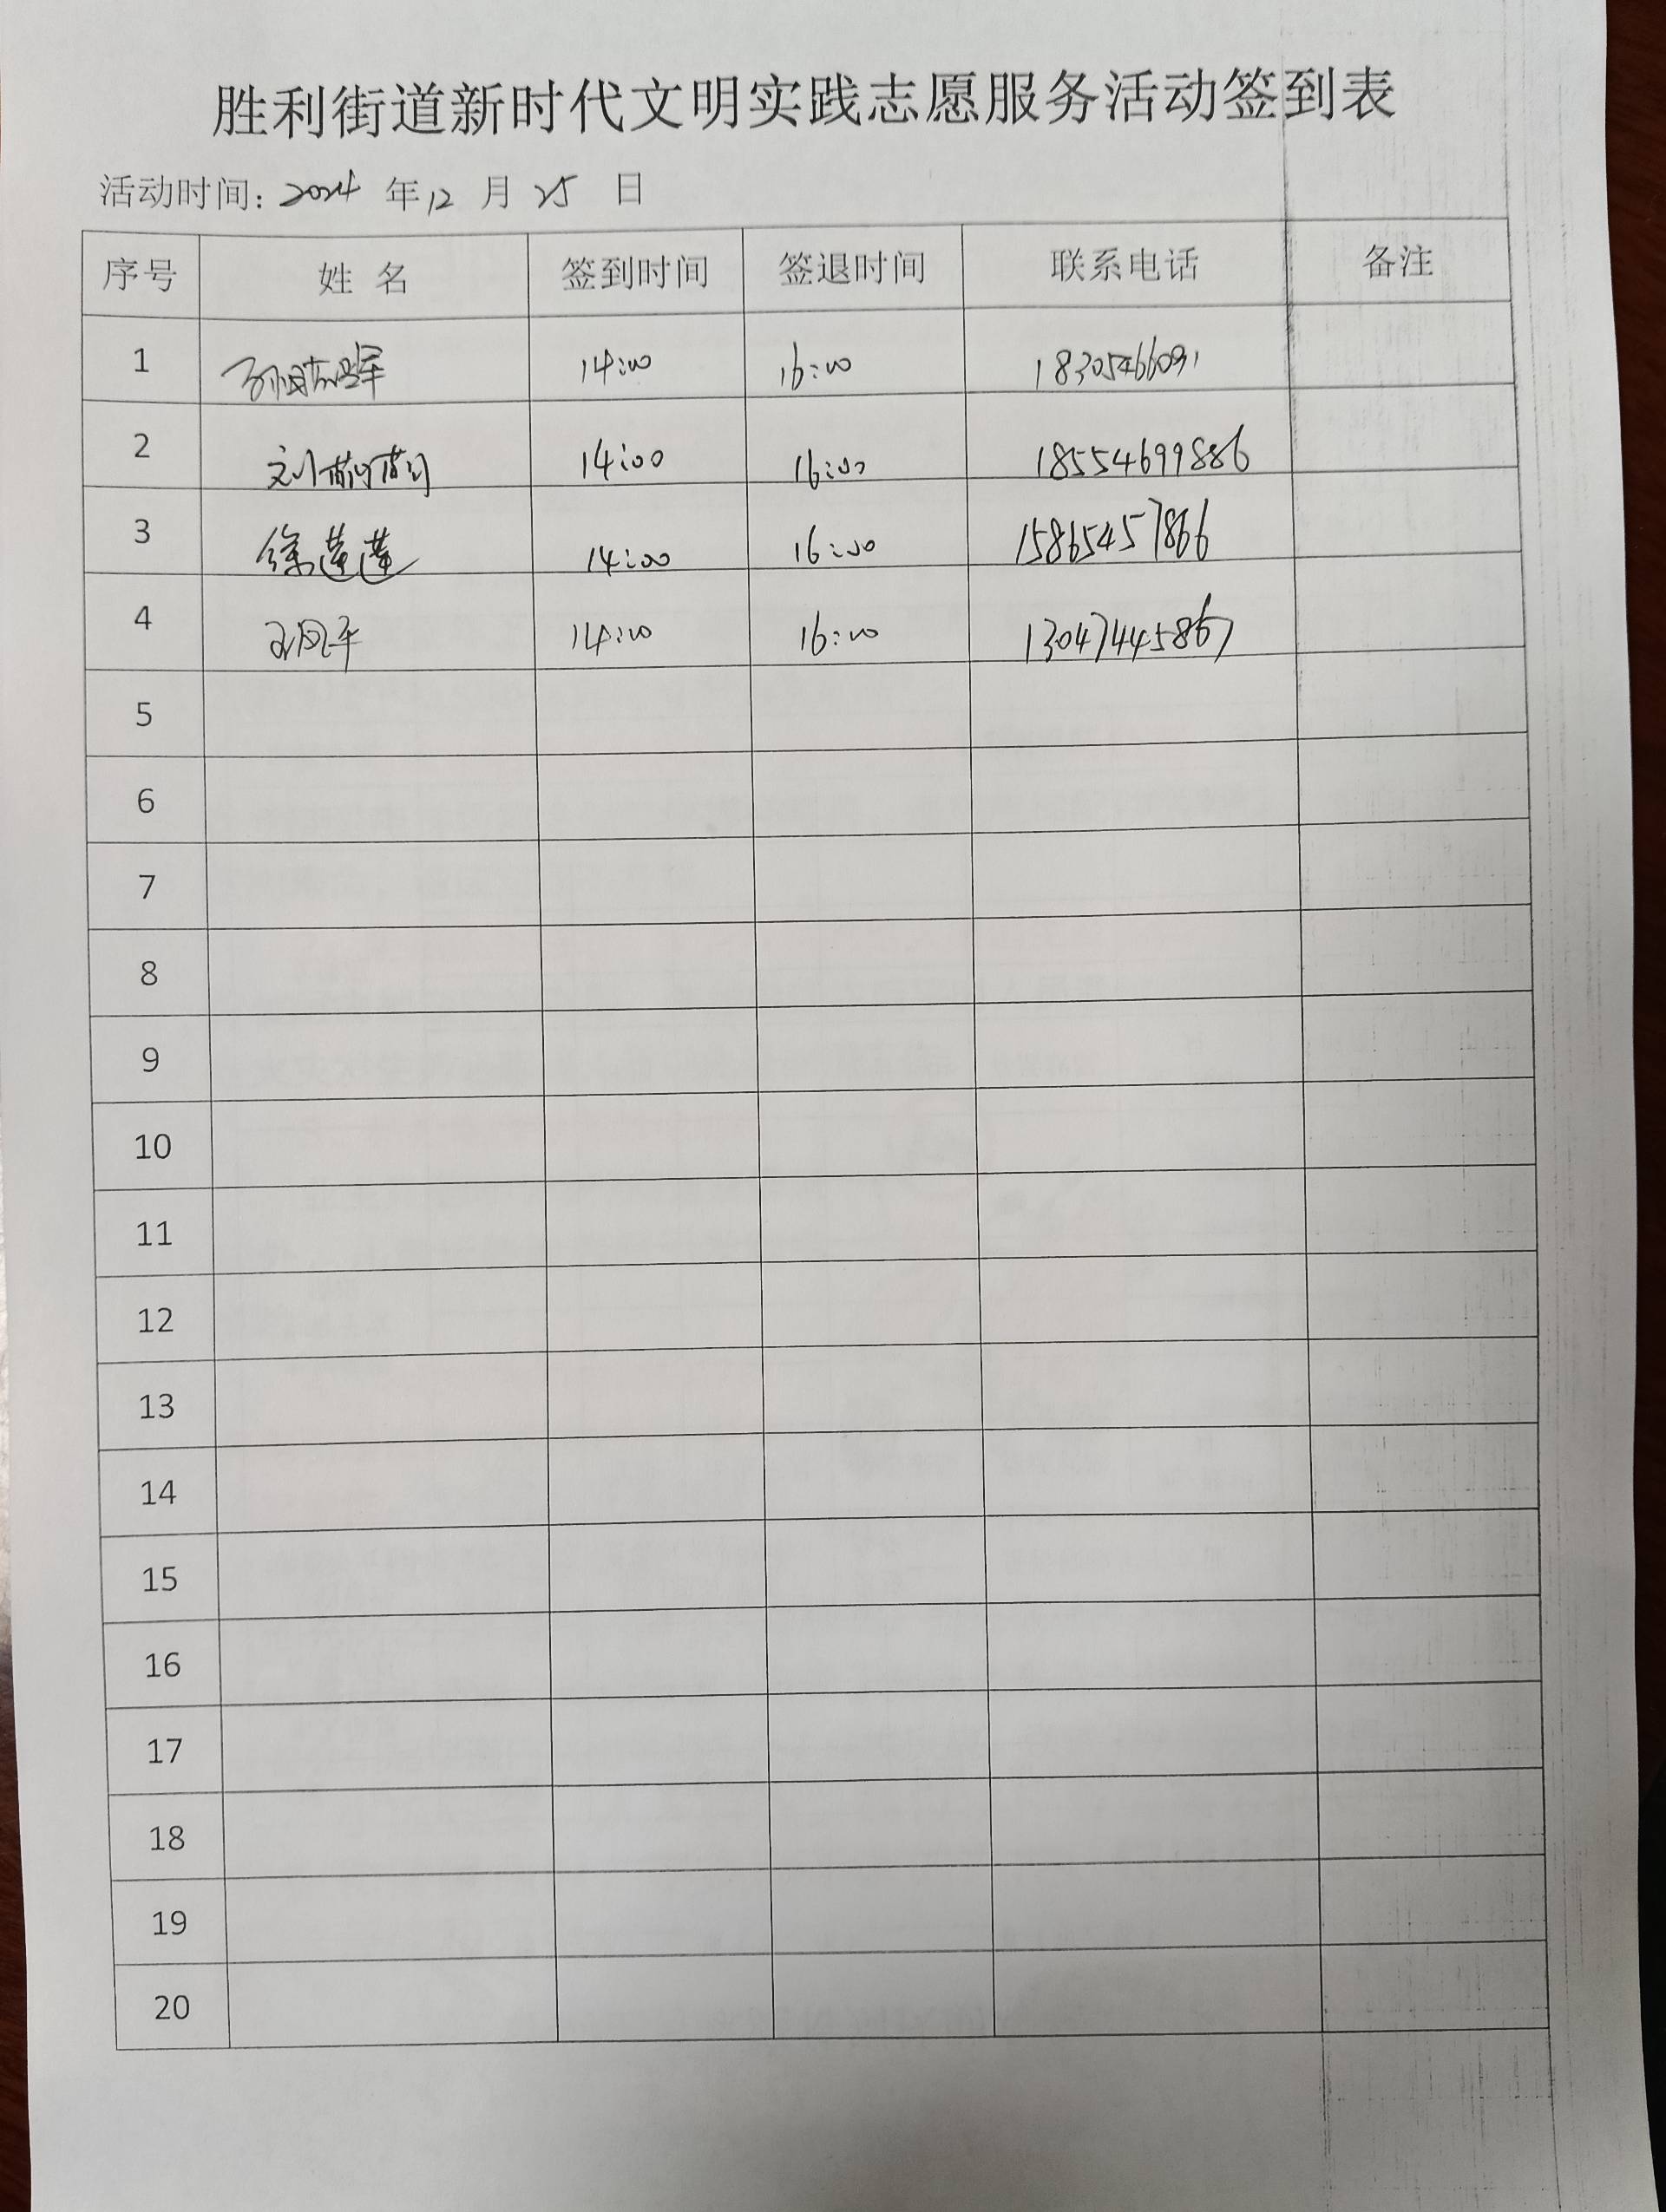 胜利街道新时代文明实践志愿服务活动签到表
活动时间: 2024 年 12 月 25 日
序号 姓 名 签到时间 签退时间 联系电话 备注
1 14:00 16:00 18305466091
2 刘萌萌 14:00 16:00 18554699886
3 徐莲莲 14:00 16:00 15865457866
4 14:00 16:00 13047445867
5
6
7
8
9
10
11
12
13
14
15
16
17
18
19
20